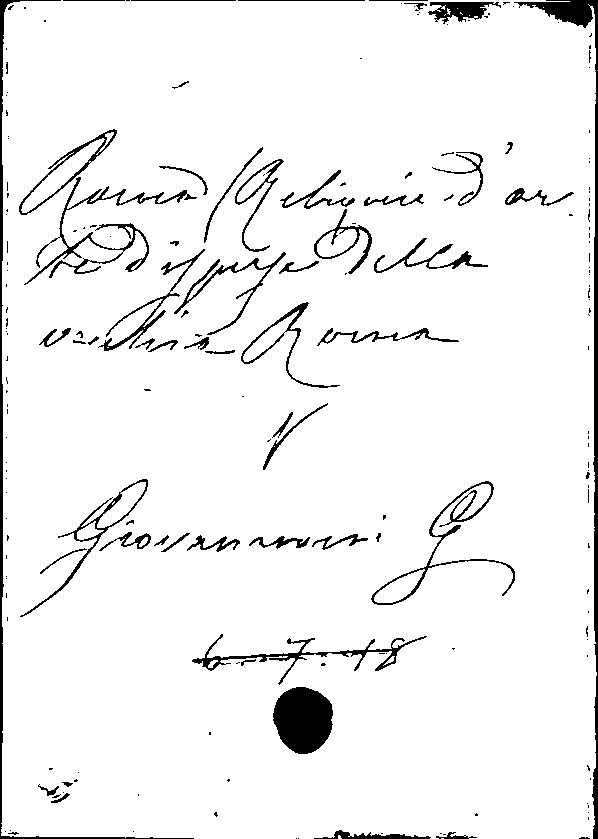 Roma (Reliquie d'ar
te disperse della
vecchia Roma
V
Giovannoni G
6-7-18